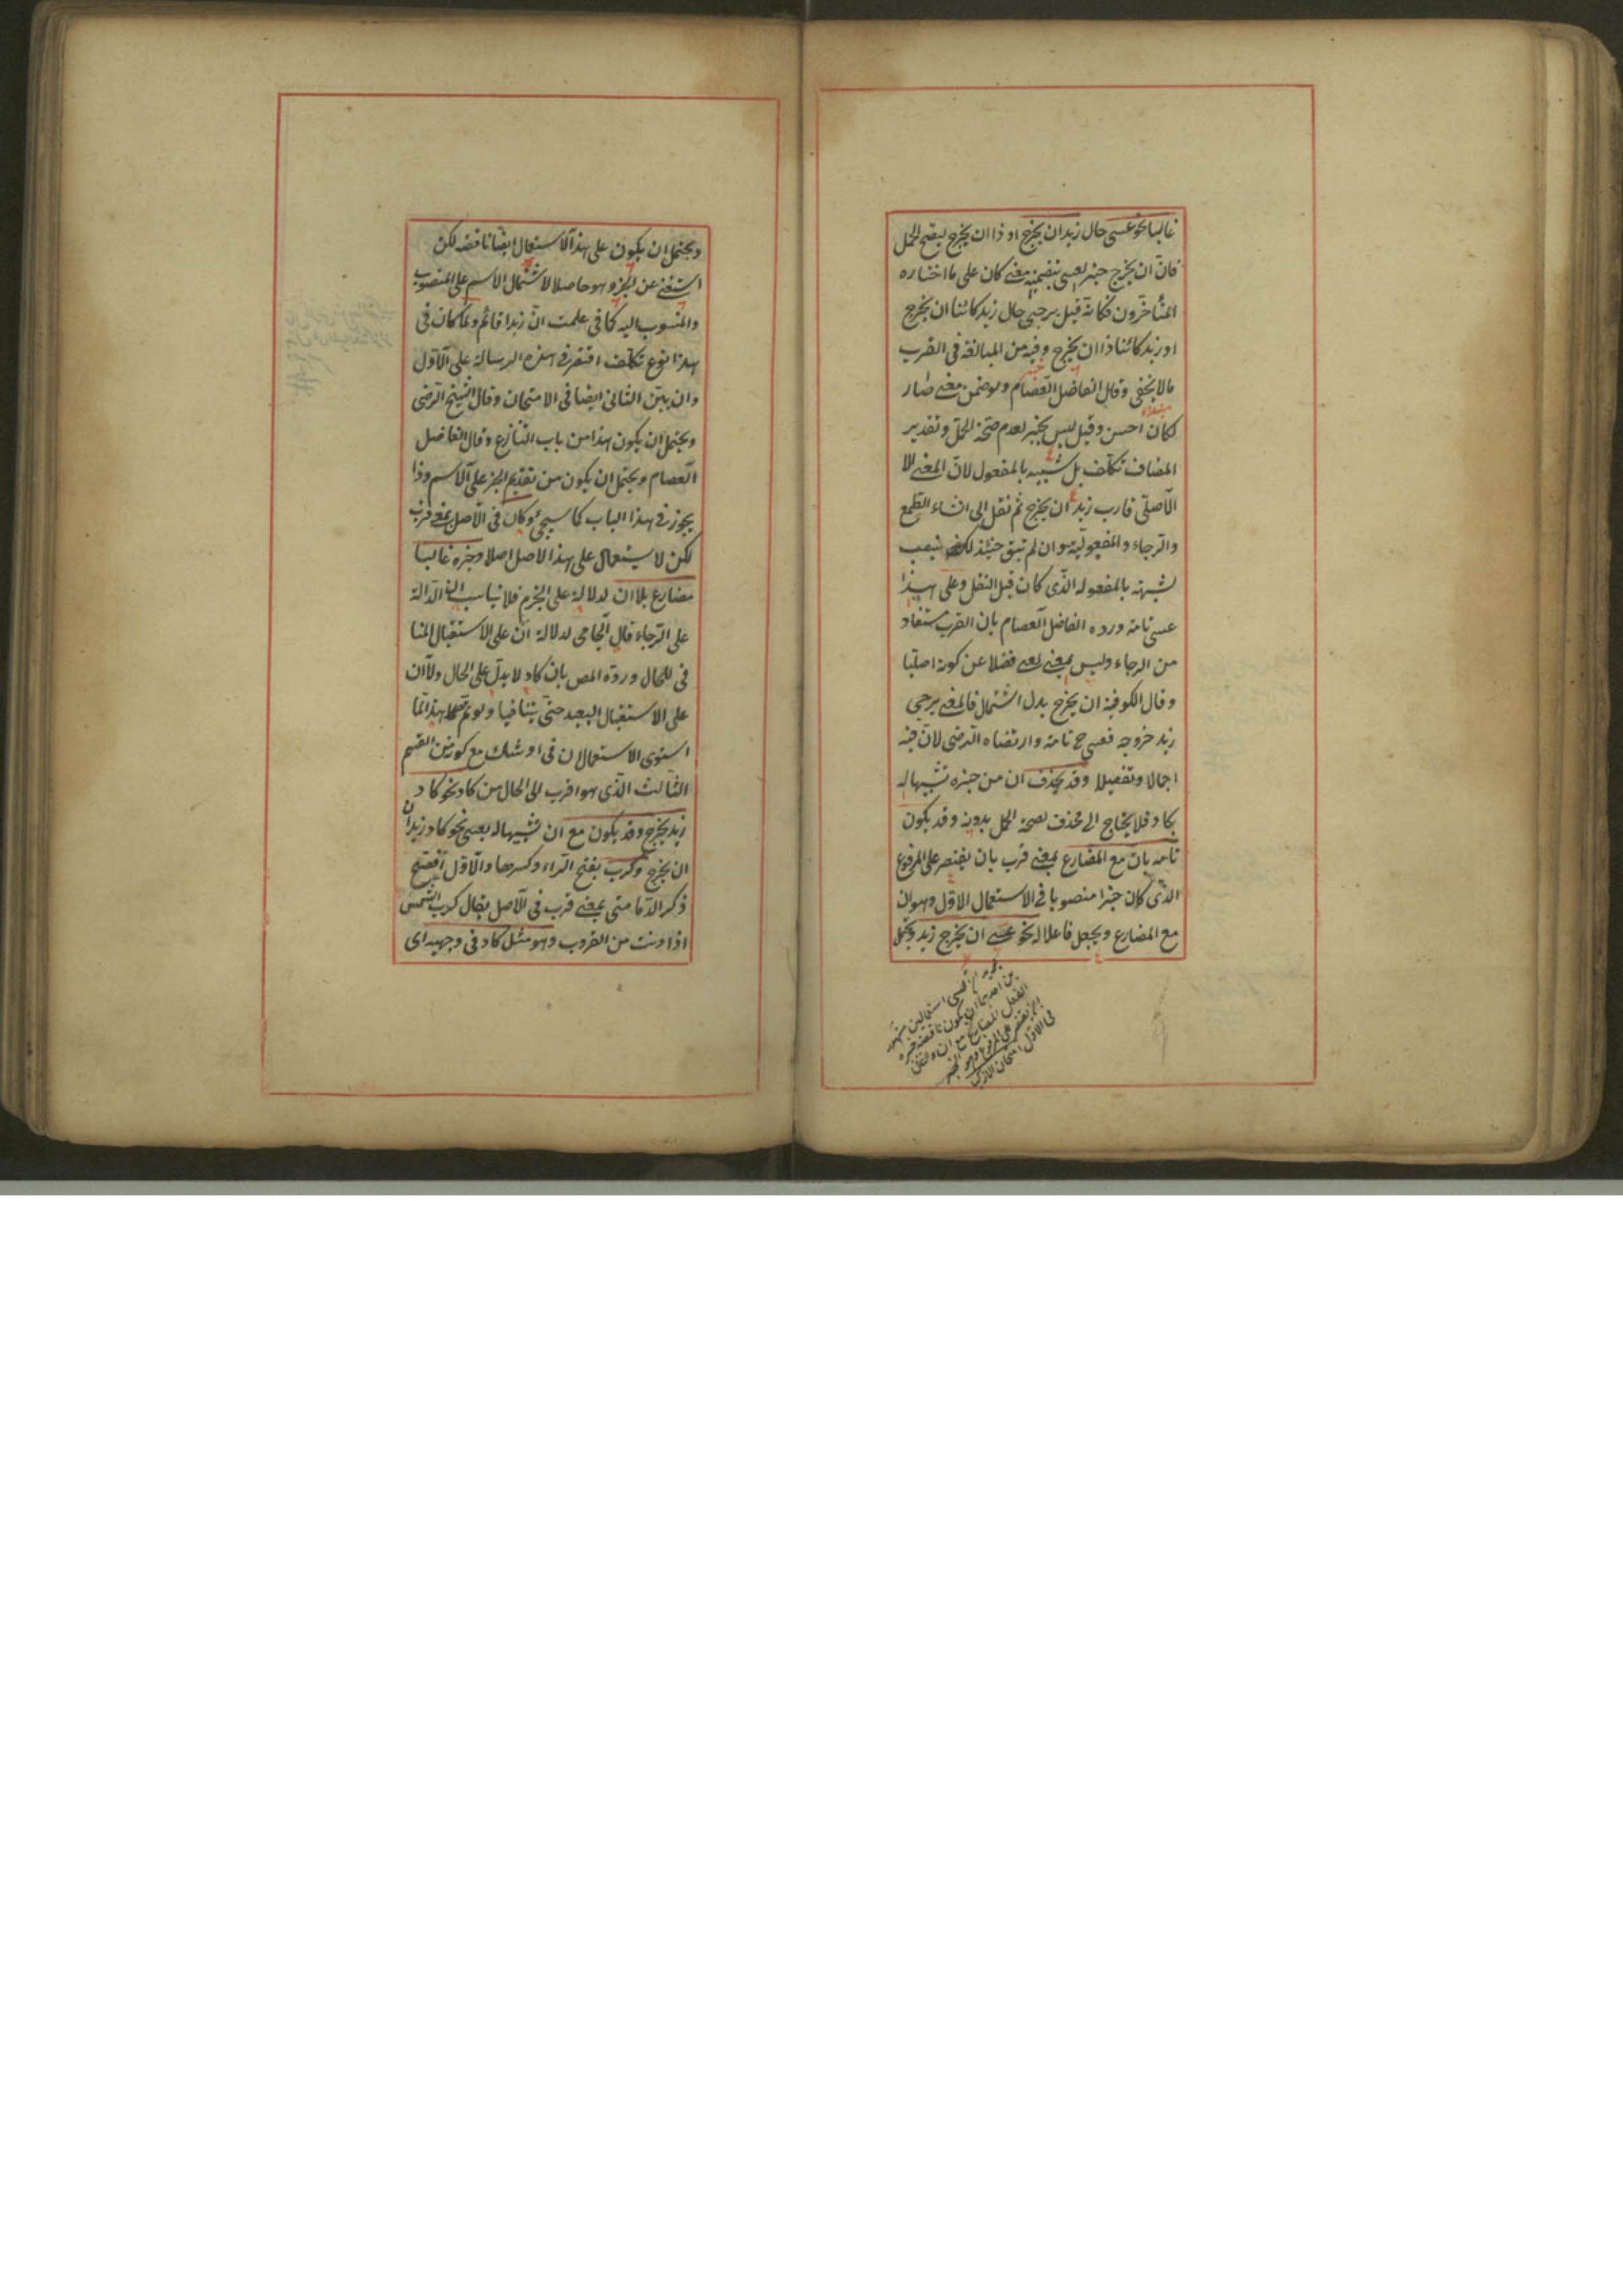 غالبا نحو عسى حال زيد ان يخرج او ذا ان يخرج ليصح الحمل
فان ان يخرج خبر لعسى بتضمينه معنى كان على ما اختاره
المتأخرون فكانه قيل يرجى حال زيد كائنا ان يخرج
او زيد كائنا ذا ان يخرج وفيه من المبالغة في القرب
ما لا يخفى وقال الفاضل العصام ولو ضمن معنى صار
لكان احسن وقيل ليس بخبر لعدم صحة الحمل وتقدير
المضاف تكلف بل شبيه بالمفعول لان المعنى الا
الاصلى قارب زيد ان يخرج ثم نقل الى انشاء الطمع
والرجاء والمفعولية وان لم تبق حينئذ لكن نصب
لشبهته بالمفعول الذى كان قبل النقل وعلى هذا
عسى تامة ورده الفاضل العصام بان القرب مستفاد
من الرجاء وليس بمعنى لعسى فضلا عن كونه اصليا
وقال الكوفية ان يخرج بدل اشتمال فالمعنى يرجى
زيد خروجه فعسى ح تامة وارتضاه الرضى لان فيه
اجمالا وتفصيلا وقد يحذف ان من خبره تشبيها له
بكاد فلا يحتاج الى محذف لصحة الحمل بدونه وقد يكون
تامة بان مع المضارع بمعنى قرب بان يقتصر على المرفوع
الذى كان خبرا منصوبا في الاستعمال الاول وهو ان
مع المضارع ويجعل فاعلا له نحو عسى ان يخرج زيد ويحتمل
استعمالين
احدهما ان يكون ناقصة خبره
الفعل المضارع مع ان
ويحتمل ان يكون على هذا الاستعمال ايضا ناقصة لكن
استغنى عن الخبر وهو حاصلا لاشتمال الاسم على المنصوب
والمنسوب اليه كما في علمت ان زيدا قائم ولما كان في
هذا نوع تكلف اقتصر في هذه الرسالة على الاول
وان بين الثانى ايضا في الامتحان وقال الشيخ الرضى
ويحتمل ان يكون هذا من باب التنازع وقال الفاضل
العصام ويحتمل ان يكون من تقديم الخبر على الاسم وذا
يجوز في هذا الباب كما سيجئ وكاد في الاصل بمعنى قرب
لكن لا يستعمال على هذا الاصل اصلا وخبره غالبا
مضارع بلا ان لدلالته على الجزم فلا يناسب ان الدالة
على الرجاء قال الجامى لدلالة ان على الاستقبال المنا
فى للحال ورده المص بان كاد لا يدل على الحال ولا ان
على الاستقبال البعيد حتى يتنافيا ولو تم هذا لما
استوى الاستعمالان في اوشك مع كونه من القسم
الثالث الذى هو اقرب الى الحال من كاد نحو كاد
زيد يخرج وقد يكون مع ان تشبيها له بعسى نحو كاد زيد ان
ان يخرج وكرب بفتح الراء وكسرها والاول افصح
ذكر الدمامينى بمعنى قرب في الاصل يقال كرب الشمس
اذا دنت من الغروب وهو مثل كاد في وجهيه اى